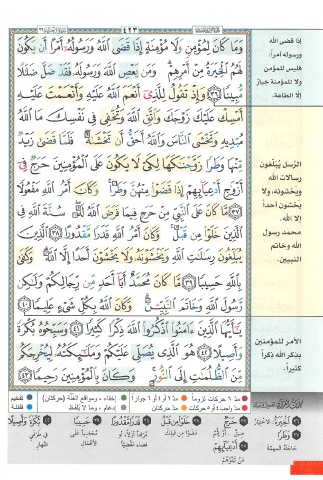 ٤٢٣
وَمَا كَانَ لِمُؤْمِنٍ وَلَا مُؤْمِنَةٍ إِذَا قَضَى ٱللَّهُ وَرَسُولُهُۥٓ أَمْرًا أَن يَكُونَ
لَهُمُ ٱلْخِيَرَةُ مِنْ أَمْرِهِمْ ۗ وَمَن يَعْصِ ٱللَّهَ وَرَسُولَهُۥ فَقَدْ ضَلَّ ضَلَٰلًا
مُّبِينًا ٣٦ وَإِذْ تَقُولُ لِلَّذِىٓ أَنْعَمَ ٱللَّهُ عَلَيْهِ وَأَنْعَمْتَ عَلَيْهِ
أَمْسِكْ عَلَيْكَ زَوْجَكَ وَٱتَّقِ ٱللَّهَ وَتُخْفِى فِى نَفْسِكَ مَا ٱللَّهُ
مُبْدِيهِ وَتَخْشَى ٱلنَّاسَ وَٱللَّهُ أَحَقُّ أَن تَخْشَىٰهُ ۖ فَلَمَّا قَضَىٰ زَيْدٌ
مِّنْهَا وَطَرًا زَوَّجْنَٰكَهَا لِكَىْ لَا يَكُونَ عَلَى ٱلْمُؤْمِنِينَ حَرَجٌ فِىٓ
أَزْوَٰجِ أَدْعِيَآئِهِمْ إِذَا قَضَوْا۟ مِنْهُنَّ وَطَرًا ۚ وَكَانَ أَمْرُ ٱللَّهِ مَفْعُولًا
٣٧ مَّا كَانَ عَلَى ٱلنَّبِىِّ مِنْ حَرَجٍ فِيمَا فَرَضَ ٱللَّهُ لَهُۥ ۖ سُنَّةَ ٱللَّهِ فِى
ٱلَّذِينَ خَلَوْا۟ مِن قَبْلُ ۚ وَكَانَ أَمْرُ ٱللَّهِ قَدَرًا مَّقْدُورًا ٣٨ ٱلَّذِينَ
يُبَلِّغُونَ رِسَٰلَٰتِ ٱللَّهِ وَيَخْشَوْنَهُۥ وَلَا يَخْشَوْنَ أَحَدًا إِلَّا ٱللَّهَ ۗ وَكَفَىٰ
بِٱللَّهِ حَسِيبًا ٣٩ مَّا كَانَ مُحَمَّدٌ أَبَآ أَحَدٍ مِّن رِّجَالِكُمْ وَلَٰكِن
رَّسُولَ ٱللَّهِ وَخَاتَمَ ٱلنَّبِيِّـۧنَ ۗ وَكَانَ ٱللَّهُ بِكُلِّ شَىْءٍ عَلِيمًا ٤٠
يَٰٓأَيُّهَا ٱلَّذِينَ ءَامَنُوا۟ ٱذْكُرُوا۟ ٱللَّهَ ذِكْرًا كَثِيرًا ٤١ وَسَبِّحُوهُ بُكْرَةً
وَأَصِيلًا ٤٢ هُوَ ٱلَّذِى يُصَلِّى عَلَيْكُمْ وَمَلَٰٓئِكَتُهُۥ لِيُخْرِجَكُم
مِّنَ ٱلظُّلُمَٰتِ إِلَى ٱلنُّورِ ۚ وَكَانَ بِٱلْمُؤْمِنِينَ رَحِيمًا ٤٣
إذا قضى الله
ورسوله أمراً
فليس للمؤمن
ولا للمؤمنة خيار
إلا الطاعة.
الرسل يُبلّغون
رسالات الله
ويخشونه، ولا
يخشون أحداً
إلا الله.
محمد رسول
الله وخاتم
النبيين.
الأمر للمؤمنين
بذكر الله ذكراً
كثيراً.